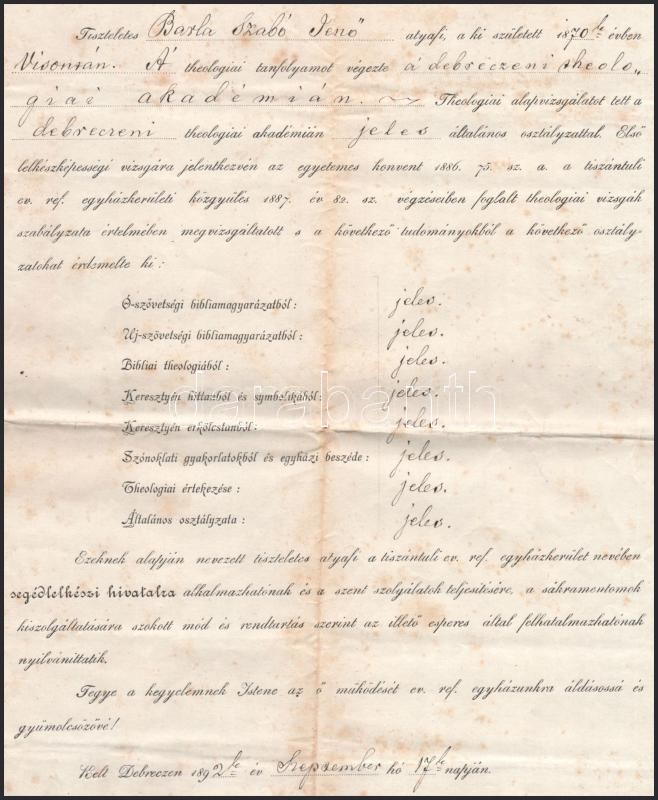 Tiszteletes Barla Szabó Jenő atyafi, a ki született 1870ik évben
Visontán. A theologiai tanfolyamot végezte a debreczeni theolo„
giai akadémián. Theologiai alapvizsgálatot tett a
debreczeni theologiai akadémián jeles általános osztályzattal. Első
lelkészképességi vizsgára jelentkezvén az egyetemes konvent 1886. 75. sz. a. a tiszántuli
ev. ref. egyházkerületi közgyülés 1887. év 82. sz. végzéseiben foglalt theologiai vizsgák
szabályzata értelmében megvizsgáltatott s a következő tudományokból a következő osztály-
zatokat érdemelte ki:
Ó-szövetségi bibliamagyarázatból: jeles.
Uj-szövetségi bibliamagyarázatból: jeles.
Bibliai theologiából: jeles.
Keresztyén hittanból és symbolikából: jeles.
Keresztyén erkölcstanból: jeles.
Szónoklati gyakorlatokból és egyházi beszéde: jeles.
Theologiai értekezése: jeles.
Általános osztályzata: jeles.
darabanth
Ezeknek alapján nevezett tiszteletes atyafi a tiszántuli ev. ref. egyházkerület nevében
segédlelkészi hivatalra alkalmazhatónak és a szent szolgálatok teljesitésére, a sákramentomok
kiszolgáltatására szokott mód és rendtartás szerint az illető esperes által felhatalmazhatónak
nyilvánittatik.
Tegye a kegyelemnek Istene az ő müködését ev. ref. egyházunkra áldásossá és
gyümölcsözővé!
Kelt Debreczen 1892ik év September hó 17ik napján.